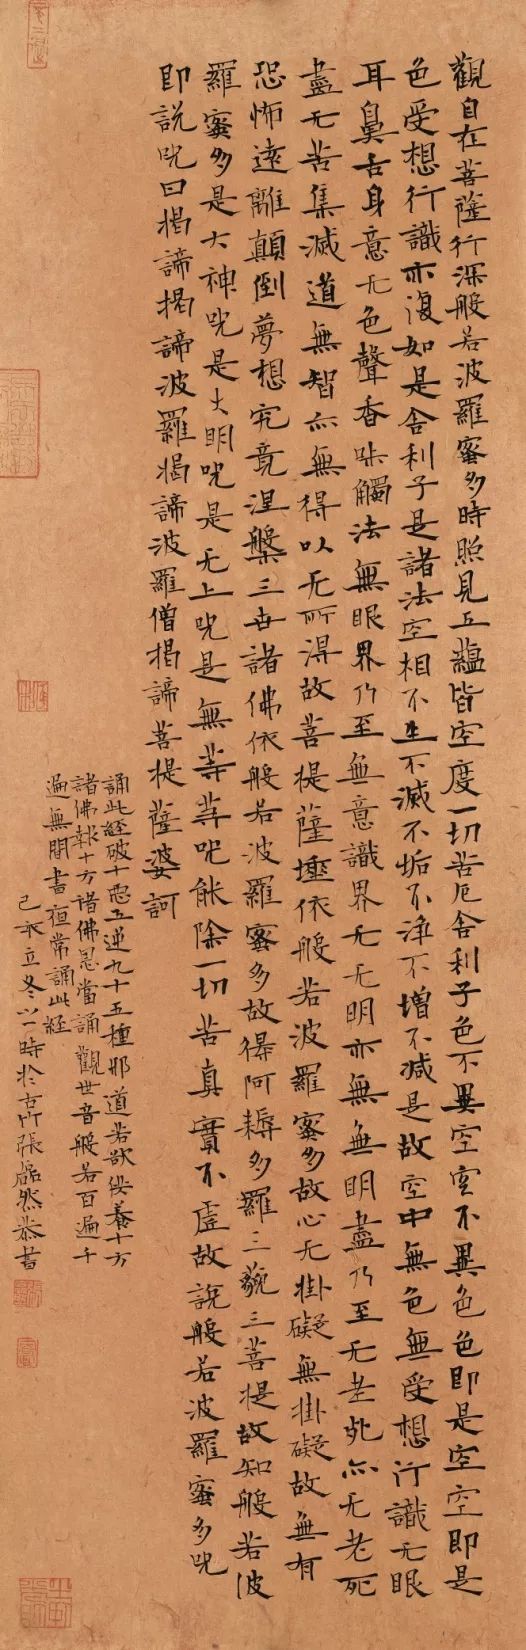 觀自在菩薩行深般若波羅蜜多時照見五蘊皆空度一切苦厄舍利子色不異空空不異色色即是空空即是
色受想行識亦復如是舍利子是諸法空相不生不滅不垢不淨不增不減是故空中無色無受想行識无眼
耳鼻舌身意无色聲香味觸法無眼界乃至無意識界无无明亦無無明盡乃至无老死亦无老死
盡无苦集滅道無智亦無得以无所得故菩提薩埵依般若波羅蜜多故心无掛礙無掛礙故無有
恐怖遠離顛倒夢想究竟涅槃三世諸佛依般若波羅蜜多故得阿耨多羅三藐三菩提故知般若波
羅蜜多是大神咒是大明咒是无上咒是無等等咒能除一切苦真實不虛故說般若波羅蜜多咒
即說咒曰揭諦揭諦波羅揭諦波羅僧揭諦菩提薩婆訶
誦此經破十惡五逆九十五種邪道若欲供養十方
諸佛報十方諸佛恩當誦觀世音般若百遍千
遍無間晝夜常誦此經
己亥立冬以一時於古竹張磊然恭書